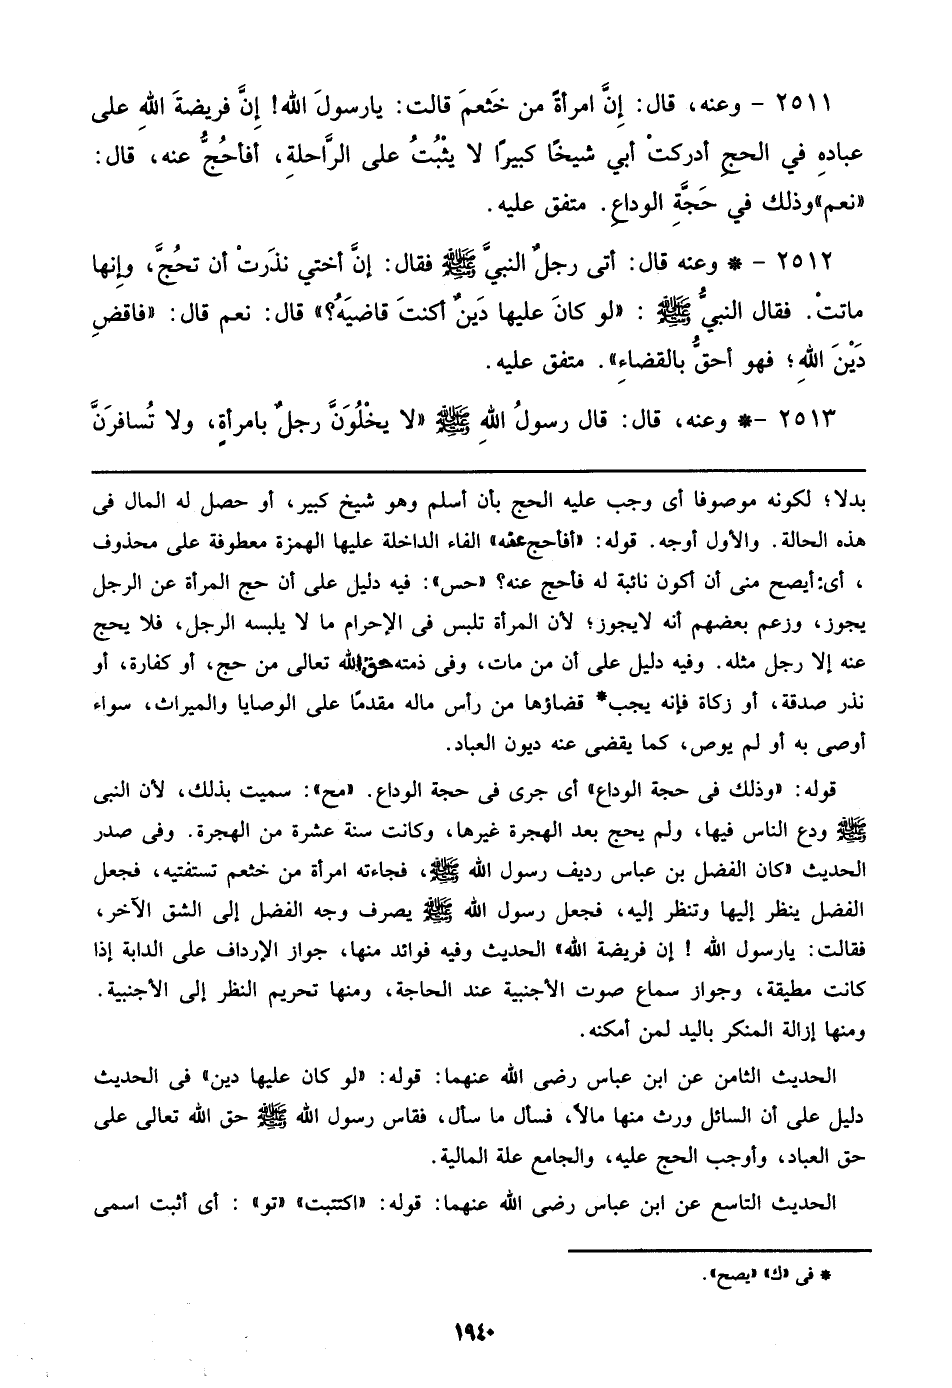 ٢٥١١ – وعنه، قال: إنَّ امرأةً من خَثعمَ قالت: يارسولَ الله! إنَّ فريضةَ اللهِ على
عبادهِ في الحجِ أدركتْ أبي شيخًا كبيرًا لا يثْبُتُ على الرَّاحلةِ، أفأحُجُّ عنه، قال:
«نعم»وذلك في حَجَّةِ الوداعِ. متفق عليه.
٢٥١٢ – * وعنه قال: أتى رجلٌ النبيَّ ﷺ فقال: إنَّ أختي نذَرتْ أن تحُجَّ، وإنها
ماتتْ. فقال النبيُّ ﷺ : «لو كانَ عليها دَينٌ أكنتَ قاضيَهُ؟» قال: نعم قال: «فاقضِ
دَيْنَ اللهِ؛ فهو أحقُّ بالقضاءِ». متفق عليه.
٢٥١٣ –* وعنه، قال: قال رسولُ اللهِ ﷺ «لا يخْلُوَنَّ رجلٌ بامرأةٍ، ولا تُسافرَنَّ
بدلا؛ لكونه موصوفا أى وجب عليه الحج بأن أسلم وهو شيخ كبير، أو حصل له المال فى
هذه الحالة. والأول أوجه. قوله: «أفأحج عنه» الفاء الداخلة عليها الهمزة معطوفة على محذوف
، أى: أيصح منى أن أكون نائبة له فأحج عنه؟ «حس»: فيه دليل على أن حج المرأة عن الرجل
يجوز، وزعم بعضهم أنه لايجوز؛ لأن المرأة تلبس فى الإحرام ما لا يلبسه الرجل، فلا يحج
عنه إلا رجل مثله. وفيه دليل على أن من مات، وفى ذمته حق الله تعالى من حج، أو كفارة، أو
نذر صدقة، أو زكاة فإنه يجب* قضاؤها من رأس ماله مقدمًا على الوصايا والميراث، سواء
أوصى به أو لم يوص، كما يقضى عنه ديون العباد.
قوله: «وذلك فى حجة الوداع» أى جرى فى حجة الوداع. «مح»: سميت بذلك، لأن النبى
ﷺ ودع الناس فيها، ولم يحج بعد الهجرة غيرها، وكانت سنة عشرة من الهجرة. وفى صدر
الحديث «كان الفضل بن عباس رديف رسول الله ﷺ، فجاءته امرأة من خثعم تستفتيه، فجعل
الفضل ينظر إليها وتنظر إليه، فجعل رسول الله ﷺ يصرف وجه الفضل إلى الشق الآخر،
فقالت: يارسول الله ! إن فريضة الله» الحديث وفيه فوائد منها، جواز الإرداف على الدابة إذا
كانت مطيقة، وجواز سماع صوت الأجنبية عند الحاجة، ومنها تحريم النظر إلى الأجنبية.
ومنها إزالة المنكر باليد لمن أمكنه.
الحديث الثامن عن ابن عباس رضى الله عنهما: قوله: «لو كان عليها دين» فى الحديث
دليل على أن السائل ورث منها مالاً، فسأل ما سأل، فقاس رسول الله ﷺ حق الله تعالى على
حق العباد، وأوجب الحج عليه، والجامع علة المالية.
الحديث التاسع عن ابن عباس رضى الله عنهما: قوله: «اكتتبت» «تو» : أى أثبت اسمى
* فى «ك» «يصح».
١٩٤٠